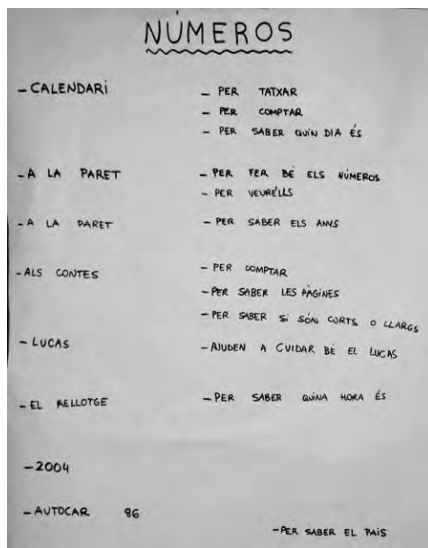 NÚMEROS
- CALENDARi - PER TATXAR
- PER COMPTAR
- PER SABER QUÍN DIA ÉS
- A LA PARET - PER FER BÉ ELS NÚMEROS
- PER VEURE'LLS
- A LA PARET - PER SABER ELS ANYS
- ALS CONTES - PER COMPTAR
- PER SABER LES PÀGINES
- PER SABER Si SÓN CURTS O LLARGS
- LUCAS - AJUDEN A CUIDAR BÉ EL LUCAS
- EL RELLOTGE - PER SABER QUINA HORA ÉS
- 2004
- AUTOCAR 86
- PER SABER EL PAÍS